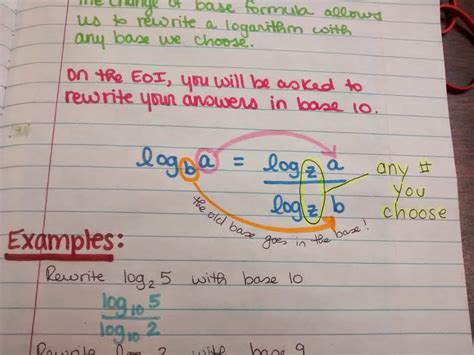 the change of base formula allows
us to rewrite a logarithm with
any base we choose.
on the EOI, you will be asked to
rewrite your answers in base 10.
log_b a = log_z a / log_z b
any #
you
choose
the old base goes in the base!
Examples:
Rewrite log₂ 5 with base 10
log₁₀ 5
log₁₀ 2
Rewrite log 2 with base 9